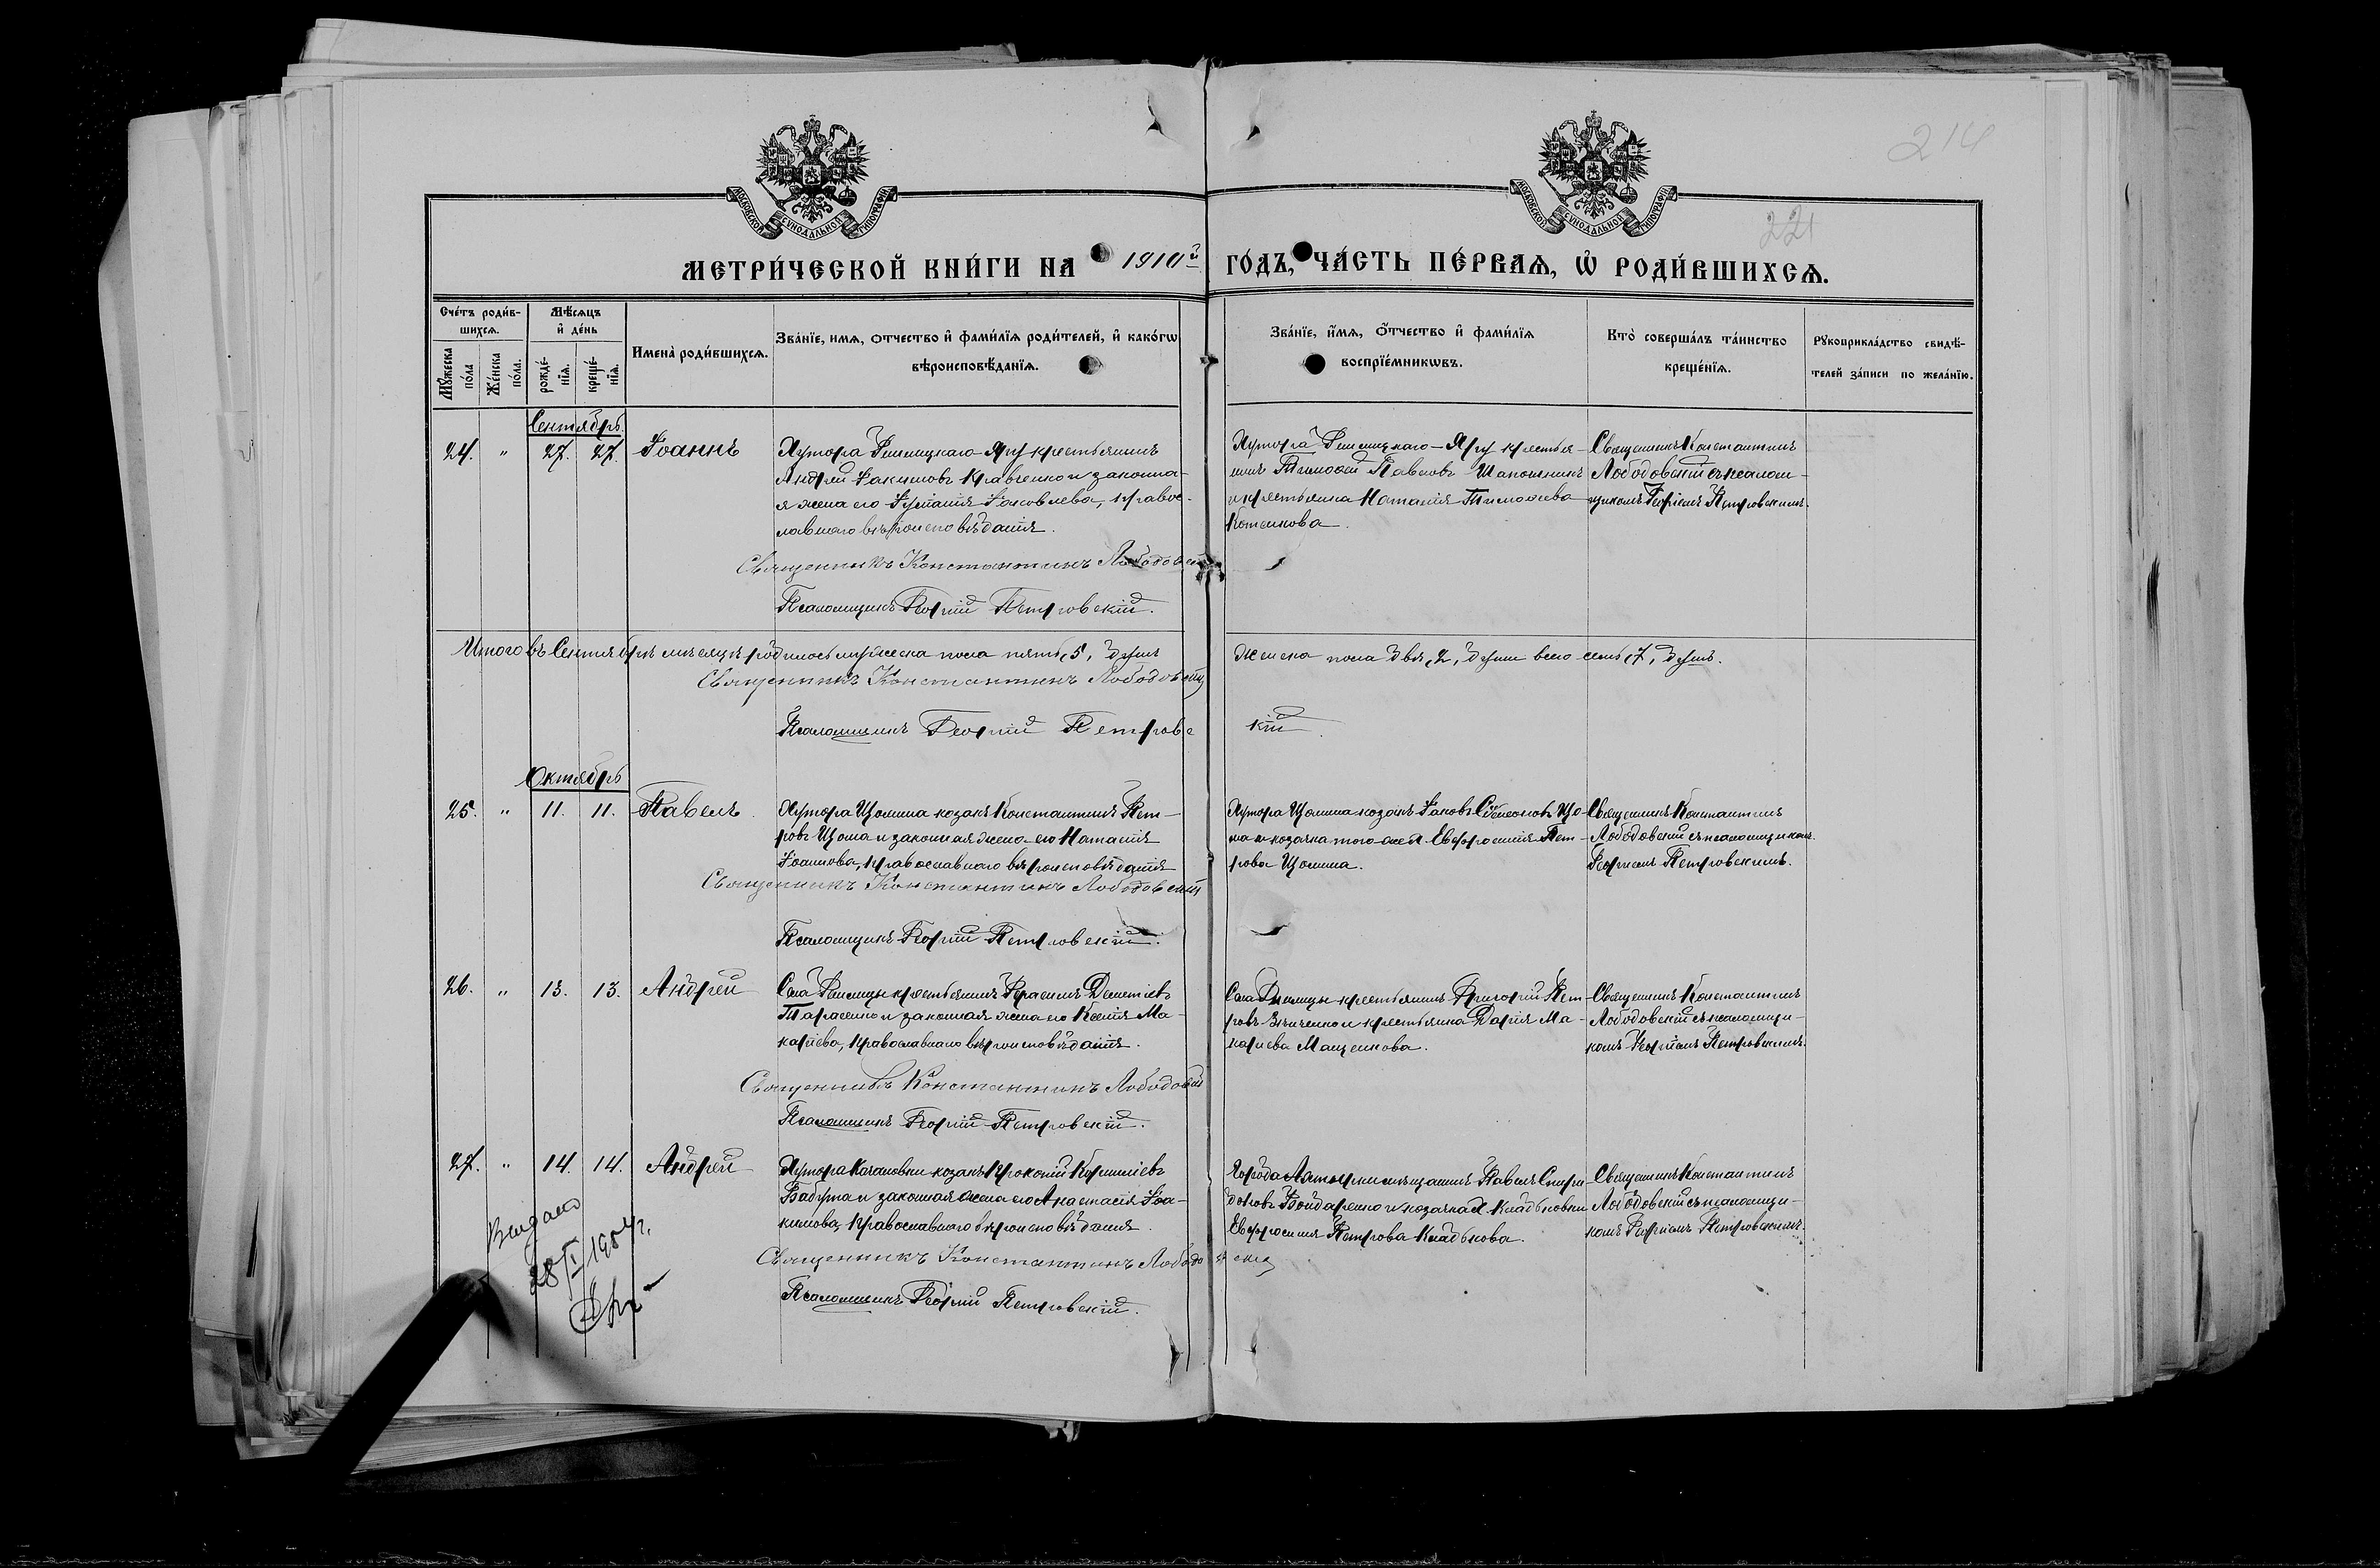 МОСКОВСКОЙ СУНОДАЛЬНОЙ ТИПОГРАФІИ
МОСКОВСКОЙ СУНОДАЛЬНОЙ ТИПОГРАФІИ
214
221
МЕТРИ́ЧЕСКОЙ КНИ́ГИ НА 1910й ГО́ДЪ, ЧА́СТЬ ПЕ́РВАѦ, Ѡ҆ РОДИ́ВШИХСѦ.
Сче́тъ роди́в-
шихсѧ.
Мѣ́сѧцъ
и҆ де́нь
Мꙋ́жеска
по́ла
Же́нска
по́ла.
рожде́-
нїѧ.
креще́-
нїѧ.
Имена̀ роди́вшихсѧ.
Зва́нїе, имѧ, отчество и҆ фами́лїѧ роди́телей, и҆ како́гѡ
вѣроисповѣ́данїѧ.
Зва́нїе, и҆́мѧ, о҆́тчество и҆ фами́лїѧ
воспрїе́мникѡвъ.
Кто̀ соверша́лъ та́инство
креще́нїѧ.
Рꙋкоприкла́дство свидѣ́-
телей за́писи по жела́нїю.
Сентябрь
24. " 27. 27. Іоаннъ
Хутора Яру крестьянинъ
Андрей Іакимовъ Кравченко и законна-
я жена его Іаковлева, правос-
лавнаго вѣроисповѣданія.
Священникъ Константинъ Лободовскій
Псаломщикъ Георгій Петровскій.
Хутора Яру крестья-
нинъ Тимоѳей Павловъ Шапошникъ
и крестьянка Наталія Тимоѳеева
Котенкова.
Священникъ Константинъ
Лободовскій съ псалом-
щикомъ Георгіемъ Петровскимъ.
Итого въ Сентябрѣ мѣсяцѣ родилось мужеска пола пять, 5, душъ женска пола двѣ, 2, души всего семь, 7, душъ.
Священникъ Константинъ Лободовскій
Псаломщикъ Георгій Петровскій
Октябрь
25. " 11. 11. Павелъ
Хутора Щомина козакъ Константинъ Пет-
ровъ Щома и законная жена его Наталія
Іоаннова, православнаго вѣроисповѣданія
Священникъ Константинъ Лободовскій
Псаломщикъ Георгій Петровскій.
Хутора Щомина козакъ Іаковъ Що-
ма и козачка того-же х. Евфросинія Пет-
рова Щомина.
Священникъ Константинъ
Лободовскій съ псаломщикомъ
Георгіемъ Петровскимъ.
26. " 13. 13. Андрей
Села крестьянинъ Герасимъ Дементіевъ
Тарасенко и законная жена его Ксенія Ма-
каріева, православнаго вѣроисповѣданія.
Священникъ Константинъ Лободовскій
Псаломщикъ Георгій Петровскій.
Села крестьянинъ Григорій Пет-
ровъ и крестьянка Дарія Ма-
каріева Мащенкова.
Священникъ Константинъ
Лободовскій съ псаломщи-
комъ Георгіемъ Петровскимъ.
27. " 14. 14. Андрей
Хутора Качановки козакъ Прокопій
Бабута и законная жена его Анастасія Іоа-
кимова, православнаго вѣроисповѣданія.
Священникъ Константинъ Лободовскій
Псаломщикъ Георгій Петровскій.
Города мѣщанинъ Павелъ Спири-
доновъ Бондаренко и козачка х. Кладьковки
Евфросинія Петрова Кладькова.
Священникъ Константинъ
Лободовскій съ псаломщи-
комъ Георгіемъ Петровскимъ.
Выдано